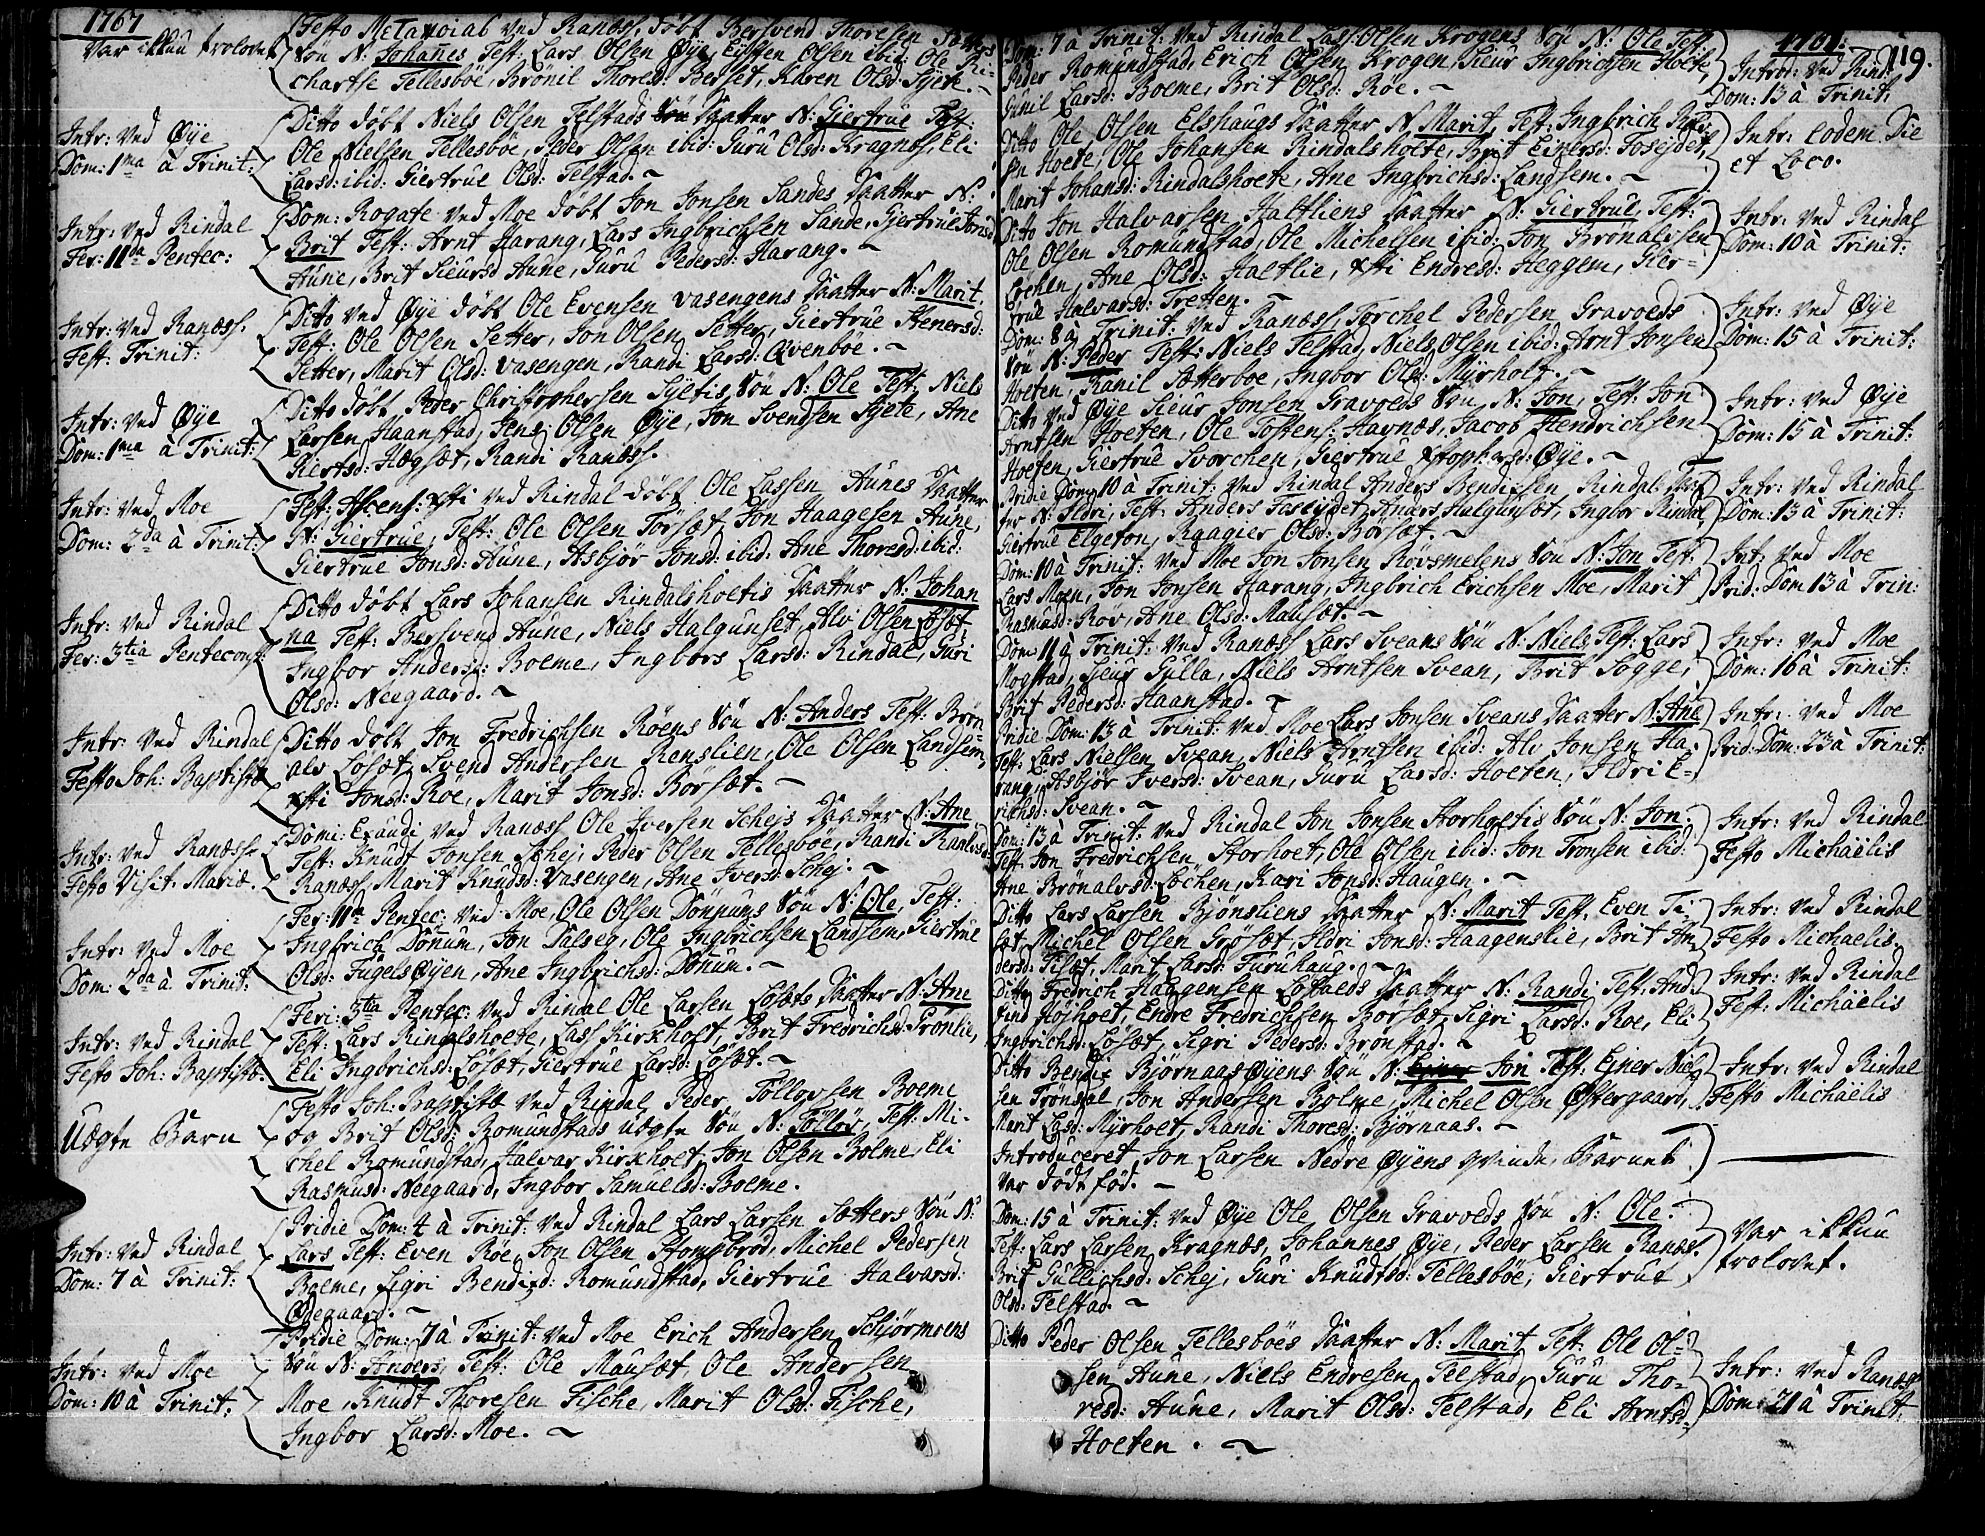 1767
Var ikkuu trolovet
Festo Metanoias ved Ranæss, døbt Bersvend Thoresen
Søn N: Johañes Test: Lars Olsen Øye, Esten Olsen ibid: Ole Ri-
chartse Tellesböe, Brönil Thoresd: Berset, Karen Olsd:
Intr: ved Øye
Dom: 1ma à Trinit:
Ditto döbt Niels Olsen Telstads Daatter N: Giertrue Test:
Ole Nielsen Tellesböe, Peder Olsen ibid: Guru Olsd: Kragnæs, Eli
Larsd: ibid: Giertrue Olsd: Telstad. ~
Intr: ved Rindal
Fer: 11da Pentec:
Dom: Rogate ved Moe döbt Jon Jonsen Sandes Daatter N:
Brit Test: Arnt Harang, Lars Ingbrichsen Sande, Giertrue Jonsd:
Aune, Brit Sieursd Aune, Guru Pedersd: Harang. ~
Intr: ved Ranæss.
Fest: Trinit:
Ditto ved Øye döbt Ole Evensen Vasengens Daatter N: Marit,
Test: Ole Olsen Setter, Jon Olsen Setter, Giertrue Stenersd:
Setter, Marit Olsd: Vasengen, Randi Larsd: Qvenboe. ~
Intr: ved Øye
Dom: 1ma à Trinit:
Ditto döbt Peder Christophersen Syltis Søn N: Ole Test: Niels
Larsen Haanstad, Jens Olsen Øye, Jon Svendsen Syete, Ane
Siertsd: Hegset, Randi Ranæss.
Intr: ved Moe
Dom: 2da à Trinit:
Fest: Ascens: xsti ved Rindal döbt Ole Lassen Aunes Daatter
N: Giertrue, Test: Ole Olsen Törset, Jon Haagesen Aune,
Giertrue Jonsd: Aune, Asbjör Jonsd: ibid: Ane Thoresd: ibid:
Intr: ved Rindal
Fer: 3tia Pentecost:
Ditto döbt Lars Johansen Rindalsholtis Daatter N: Johan
na Test: Bersvend Aune, Niels Halgunset, Alv Olsen Löset,
Ingbor Andersd: Boeme, Ingbors Larsd: Rindal, Guri
Olsd: Neegaard. ~
Intr: ved Rindal
Festo Joh: Baptistæ
Ditto döbt Jon Fredrichsen Röens Søn N: Anders Test: Brön-
alv Löset, Svend Andersen Ranslien, Ole Olsen Landsem,
xsti Jonsd: Roe, Marit Jonsd: Börset. ~
Intr: ved Ranæss.
Festo Visit. Mariæ.
Domi: Exaudi ved Ranæss Ole Iversen Schejs Daatter N: Ane
Test: Knudt Jonsen Schej, Peder Olsen Tellesböe, Randi
Ranæss, Marit Knudsd: Vasengen, Ane Iversd: Schej. ~
Intr: ved Moe
Dom: 2da à Trinit.
Fer: 11da Pentec: ved Moe, Ole Olsen Dönnums Søn N: Ole, Test:
Ingbrich Dönum, Jon Dalseg, Ole Ingbrichsen Landsem, Giertrue
Olsd: Fugelsøyen, Ane Ingbrichsd: Dönum. ~
Intr: ved Rindal
Festo Joh: Baptistæ.
Feri: 3tia Pentec: ved Rindal Ole Larsen Løsets Daatter N: Ane
Test: Lars Rindalsholte, Lass Kirkholt, Brit Fredrichsd: Gronlie,
Eli Ingbrichsd: Löset, Giertrue Larsd: Löset. ~
Uægte Barn
Festo Joh: Baptistæ ved Rindal Peder Tollovsen Boeme
og Brit Olsd: Romundstads uægte Søn N: Tölløv, Test: Mi-
chel Romundstad, Halvar Kirkholt, Jon Olsen Bolme, Eli
Rasmusd: Neegaard, Ingbor Samuelsd: Boeme.
Intr: ved Rindal
Dom: 7 à Trinit:
Pridie Dom: 4 à Trinit: ved Rindal Lars Larsen Sætters Søn N:
Lars Test: Even Röe, Jon Olsen Stomsbrod, Michel Pedersen
Boeme, Sigri Bendixd: Romundstad, Giertrue Halvarsd:
Ødegaard. ~
Intr: ved Moe
Dom: 10 à Trinit:
Pridie Dom: 7 à Trinit: ved Moe Erich Andersen Schjörmoens
Søn N: Anders, Test: Ole Mauset, Ole Andersen
Moe, Knudt Thoresen Fische, Marit Olsd: Fische,
Ingbor Larsd: Moe. ~
119.
Dom: 7 à Trinit: ved Rindal Lass Olsen Krogens Søn N: Ole Test:
Peder Romundstad, Erich Olsen Krogen, Sieur Ingbrichsen Holte,
Gunil Larsd: Boeme, Brit Olsd: Röe. ~
Introd: ved Rind:
Dom: 13 à Trinit.
Ditto Ole Olsen Elshaugs Daatter N: Marit Test: Ingbrich
sen Hoete, Ole Johansen Rindalsholte, Brit Einersd: Foseidet,
Marit Johansd: Rindalshoete, Ane Ingbrichsd: Landsem. ~
Intr: Eodem Die
et Loco.
Ditto Jon Halvarsen Haltliens Daatter N: Giertrue, Test:
Ole Olsen Romundstad, Ole Michelsen ibid: Jon Brönalvsen
Löchen, Ane Olsd: Haltlie, xsti Endresd: Heggem, Gier-
true Halvarsd: Tretten. ~
Intr: ved Rindal
Dom: 10 à Trinit:
Dom: 8 à Trinit: ved Ranæss Torchel Pedersen Gravoeds
Søn N: Peder Test: Niels Telstad, Niels Olsen ibid: Arnt Jonsen
Hoeten, Ranil Sætterboe, Ingbor Olsd: Myrholt. ~
Intr: ved Øye
Dom: 15 à Trinit:
Ditto ved Øye Sieur Jonsen Gravoeds Søn N: Jon, Test: Jon
Arntsen Hoeten, Ole Tostens: Havnæs, Jacob Hendrichsen
Hoeten, Giertrue Svorchen, Giertrue xstophersd: Øye. ~
Intr: ved Øye
Dom: 15 à Trinit:
Pridie Dom: 10 à Trinit: ved Rindal Anders Bendicsen Rindals
ter N: Ildri, Test: Anders Foseydet, Anders Halgunset, Ingbor Rindal,
Giertrue Elgeton, Raagier Olsd: Börset. ~
Intr: ved Rindal
Dom: 13 à Trinit:
Dom: 10 à Trinit: ved Moe Jon Jonsen Røvsmelens Søn N: Jon Test:
Lars Moen, Jon Jonsen Harang, Ingbrich Erichsen Moe, Marit
Rasmusd: Röv, Ane Olsd: Mauset. ~
Intr: ved Moe
Prid: Dom 13 à Trin:
Dom 11 à Trinit: ved Ranæss Lars Sveans Søn N: Niels, Test: Lars
Mogstad, Sjeur Gylla, Niels Arntsen Svean, Brit Sogge,
Brit Pedersd: Haanstad. ~
Intr: ved Moe
Dom: 16 à Trinit:
Pridie Dom: 13 à Trinit: ved Moe Lars Jonsen Sveans Daatter N: Ane
Test: Lars Nielsen Svean, Niels Arntsen ibid: Alv Jonsen Ha-
rang, Asbjör Iversd: Svean, Guru Larsd: Hoeten, Ildri E-
richsd: Svean. ~
Intr: ved Moe
Prid: Dom: 23 à Trinit:
Dom: 13 à Trinit: ved Rindal Jon Jonsen Storholtis Søn N: Jon:
Test: Jon Fredrichsen Storhoet, Ole Olsen ibid: Jon Tronsen ibid:
Ane Brönalvsd: Löchen, Kari Jonsd: Haugen. ~
Intr: ved Rindal
Festo Michäelis
Ditto Lars Larsen Bjönsliens Daatter N: Marit Test: Even Ti-
set, Michel Olsen Grösæt, Ildri Jonsd: Haagenslie, Brit An
dersd: Tiset, Marit Larsd: Furuhaug. ~
Intr: ved Rindal
Festo Michaelis.
Ditto Fredrich Haagensen Løsaeds Daatter N: Randi Test: And:
find Höjhoet, Endre Fredrichsen Borset, Sigri Larsd: Roe, Eli
Ingbrichsd: Löset, Sigri Pedersd: Brönstad. ~
Intr: ved Rindal
Fest: Michäelis
Ditto Bendix Björnaasøyens Søn N: Ejner Jon Test: Ejner Niel
sen Trönsdal, Jon Andersen Bolme, Michel Olsen Østergaard,
Marit Lasd: Myrhoet, Randi Thoresd: Björnaas. ~
Intr: ved Rindal
Festo Michäelis
Introduceret Jon Larsen Nedre Øyens qvinde, Barnet
var dödt föd. ~
Dom: 15 à Trinit: ved Øye Ole Olsen Gravoeds Søn N: Ole:
Test: Lars Larsen Kragnæs, Johannes Øye, Peder Larsen Ranæs.
Brit Gullichsd: Schej, Guri Knudtsd: Tellesböe, Giertrue
Olsd: Telstad. ~
Var ikkuu
trolovet.
Ditto Peder Olsen Tellesböes Daatter N: Marit Test: Ole Ol-
sen Aune, Niels Endresen Telstad, Guru Tho-
resd: Aune, Marit Olsd: Telstad, Eli Arntsd:
Hoeten. ~
Intr: ved Ranæss
Dom: 21 à Trinit.